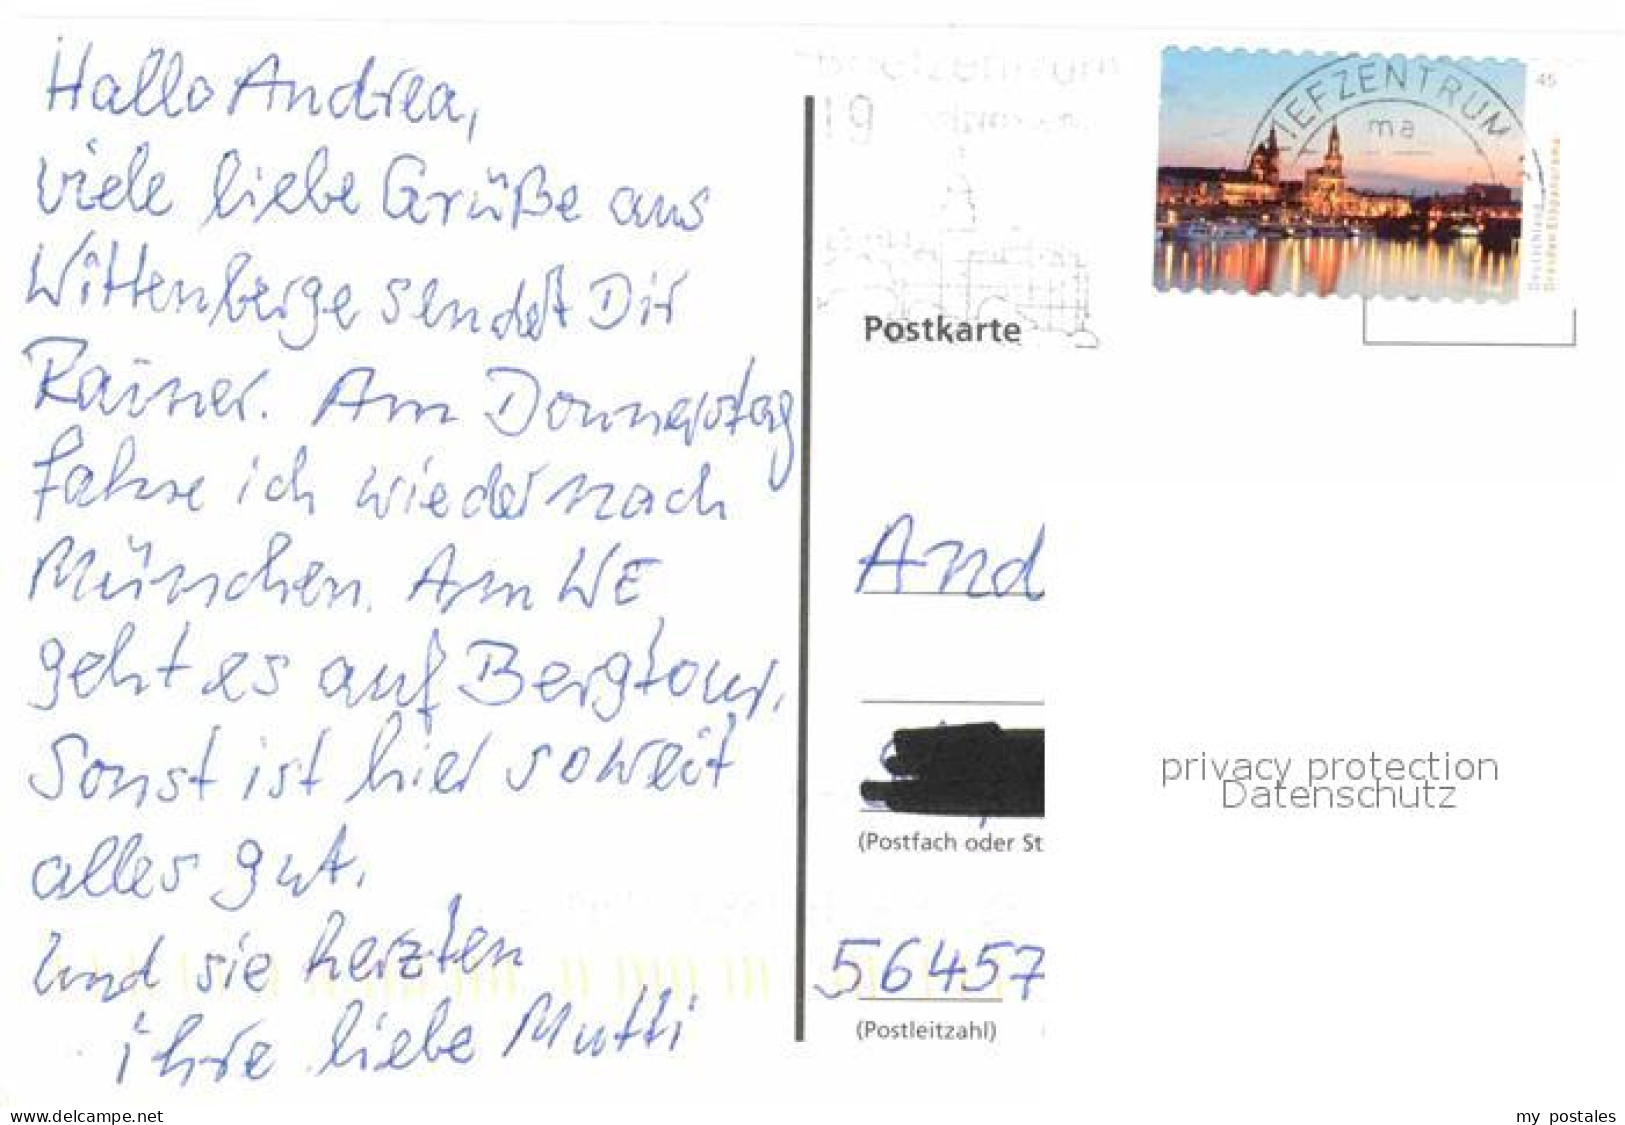 Hallo Andrea,
viele liebe Grüße aus
Wittenberge sendet Dir
Rainer. Am Donnerstag
fahre ich wieder nach
München. Am WE
geht es auf Bergtour.
Sonst ist hier soweit
alles gut.
Und sie herzten
ihre liebe Mutti
Briefzentrum
19
IEFZENTRUM
ma
45
Deutschland
Dresden Elbpanorama
Postkarte
And
privacy protection
Datenschutz
(Postfach oder St
56457
(Postleitzahl)
www.delcampe.net
my postales